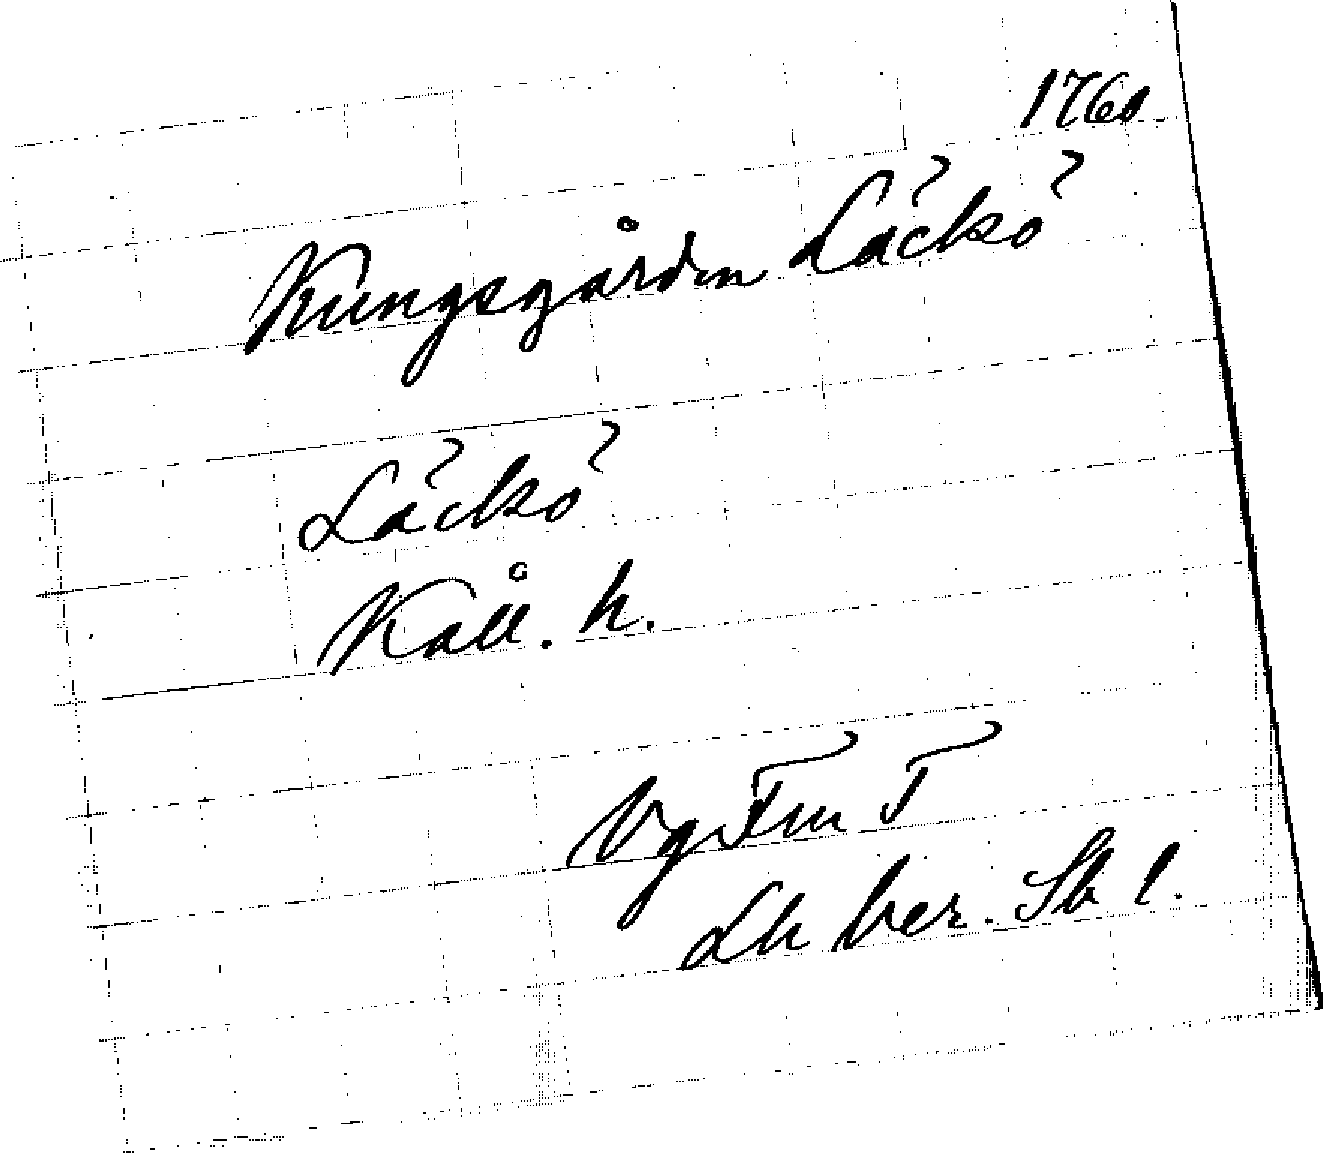 1760
Kungsgården Läckö
Läckö
Kåll. h.
Vg Fm T
Lh ber. Sk l.